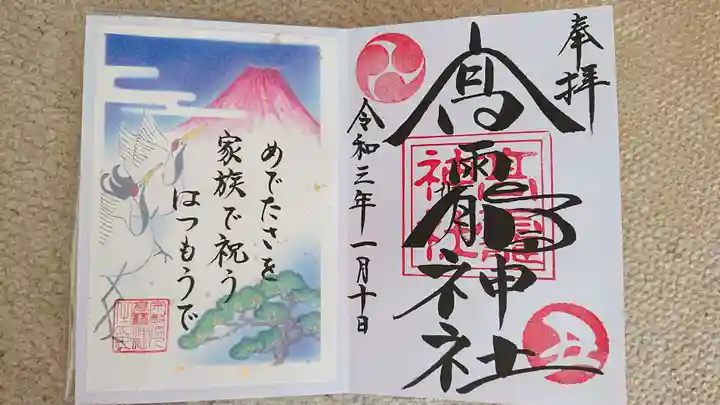 奉拝
高龗神社
高龗神社
丑
令和三年一月十日
めでたさを
家族で祝う
はつもうで